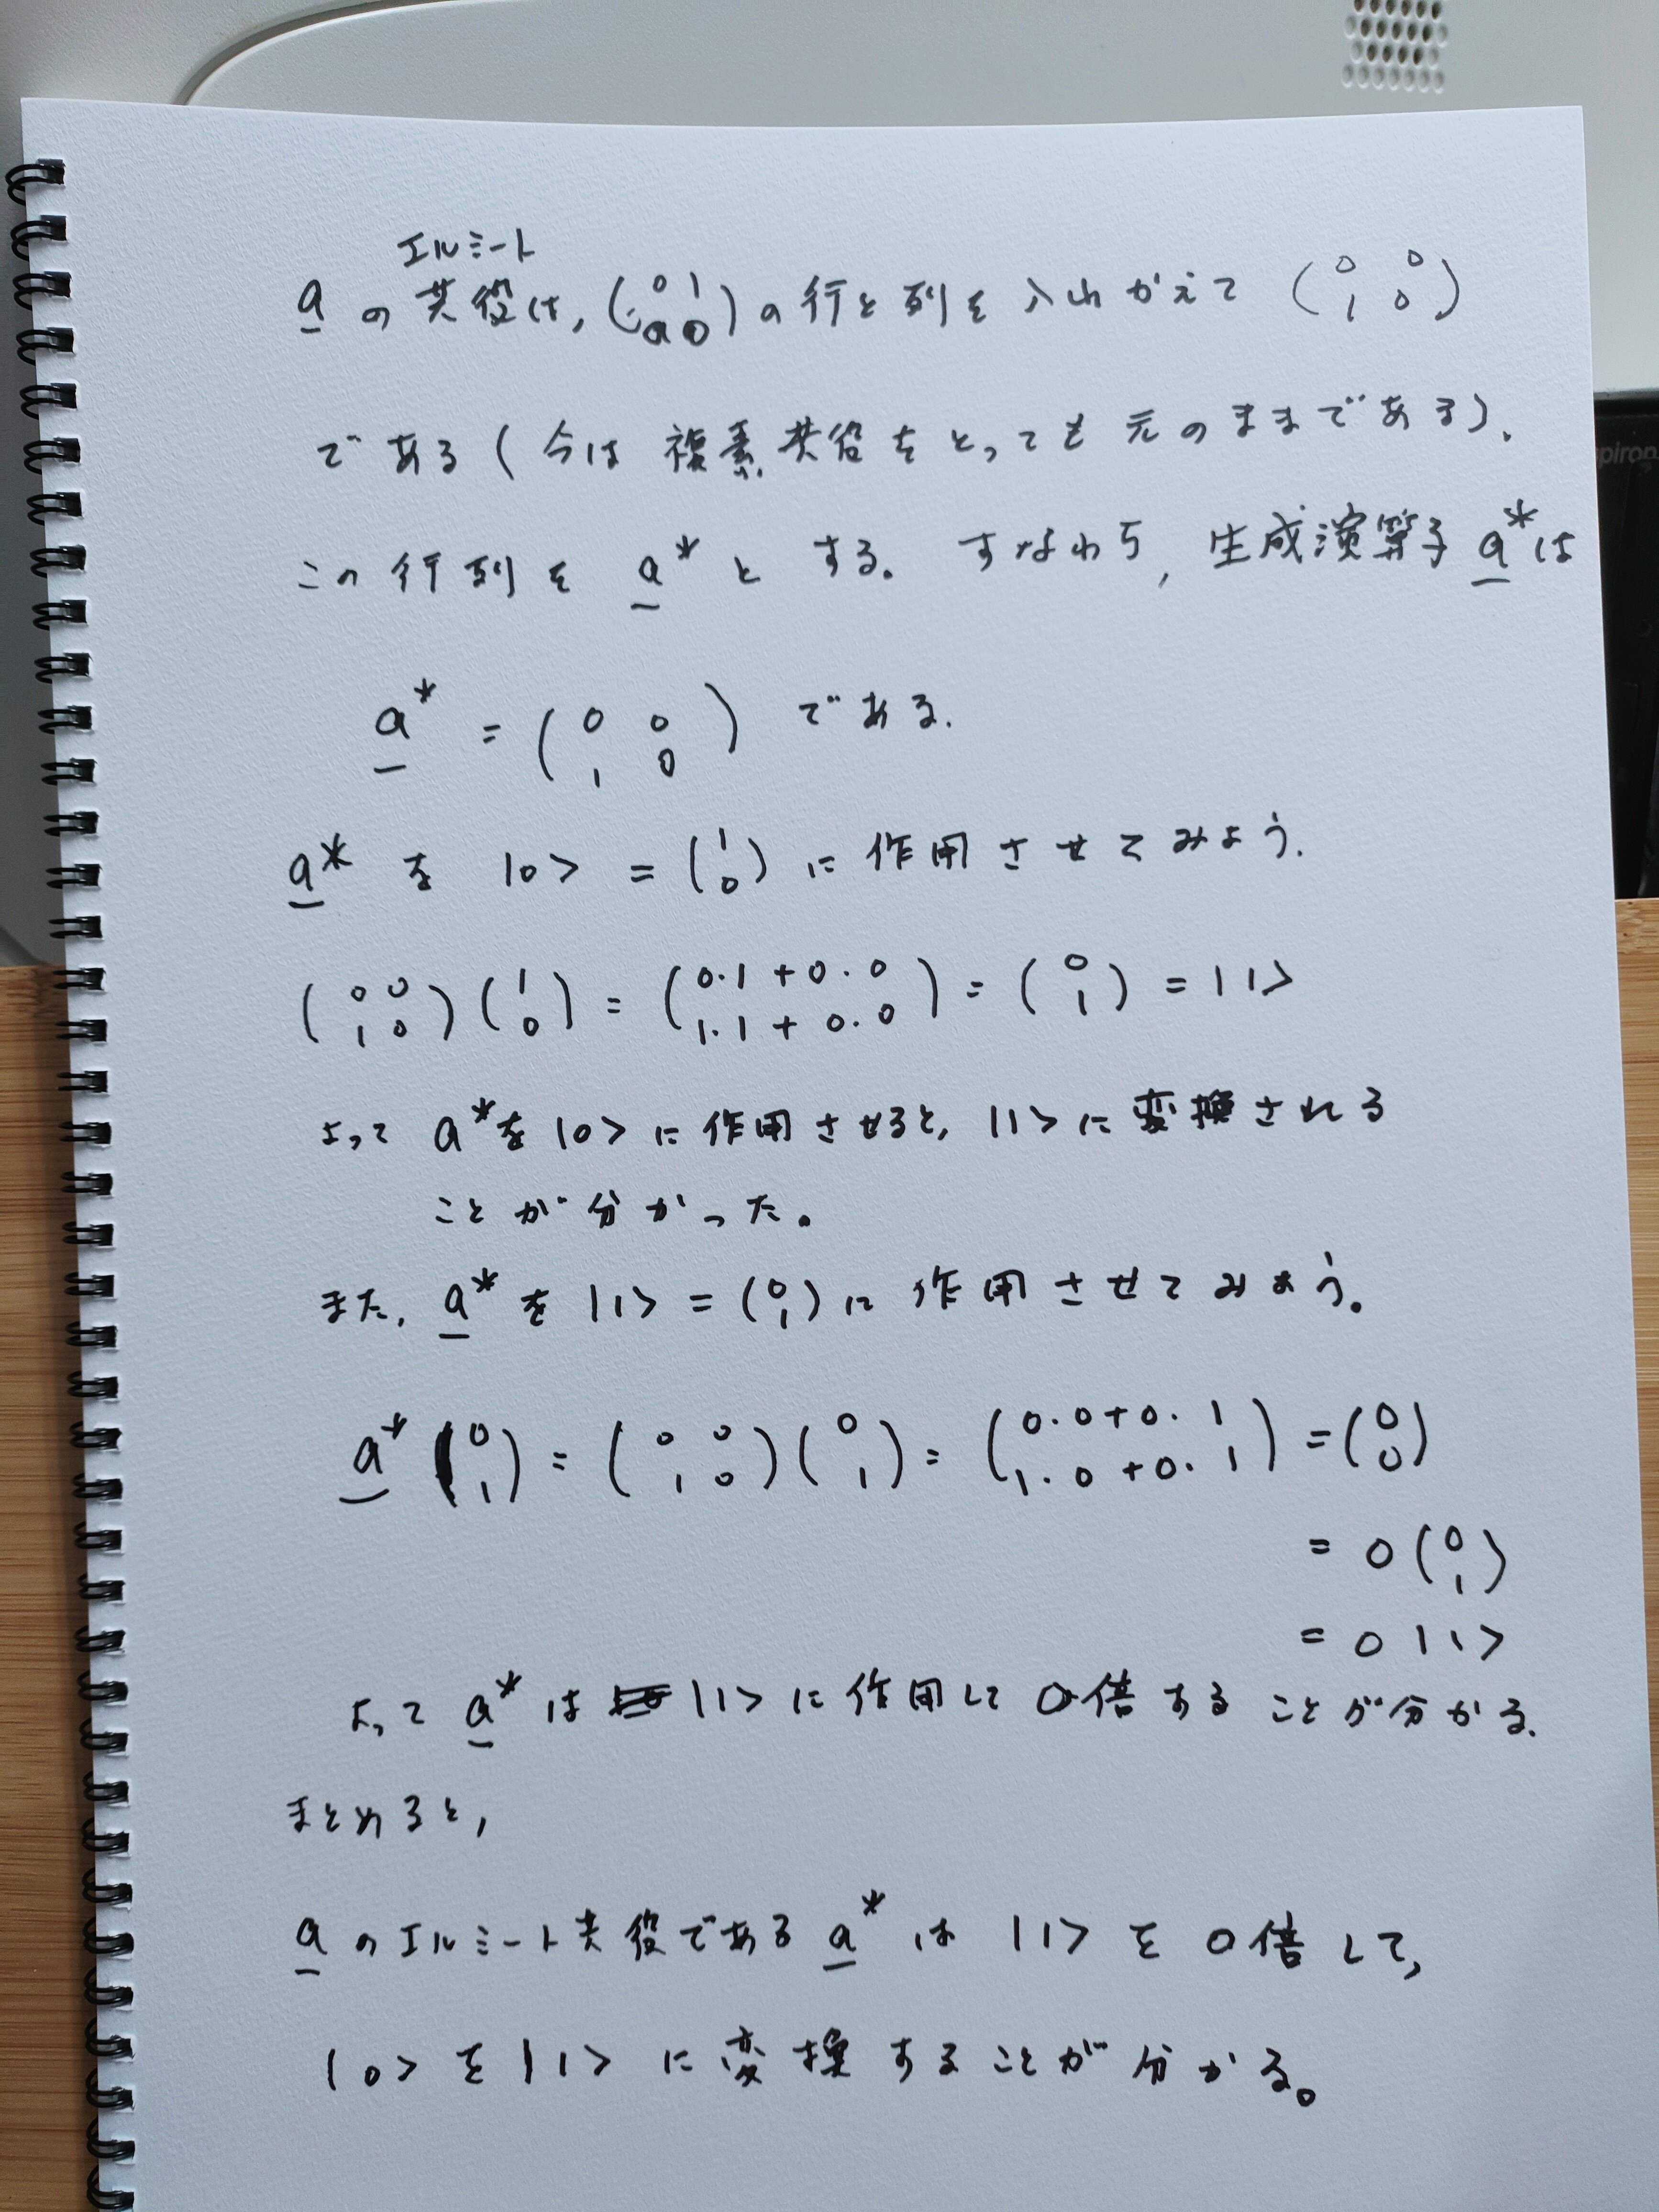 エルミート
a の共役は, (0 1 / 0 0) の行と列を入れかえて (0 0 / 1 0)
である (今は複素共役をとっても元のままである).
この行列を a* とする。すなわち, 生成演算子 a* は
a* = (0 0 / 1 0) である.
a* を |0> = (1 / 0) に作用させてみよう.
(0 0 / 1 0)(1 / 0) = (0·1 + 0·0 / 1·1 + 0·0) = (0 / 1) = |1>
よって a* を |0> に作用させると, |1> に変換される
ことが分かった。
また, a* を |1> = (0 / 1) に作用させてみよう。
a* (0 / 1) = (0 0 / 1 0)(0 / 1) = (0·0+0·1 / 1·0+0·1) = (0 / 0)
= 0 (0 / 1)
= 0 |1>
よって a* は |1> に作用して 0倍することが分かる.
まとめると,
a のエルミート共役である a* は |1> を 0倍して,
|0> を |1> に変換することが分かる。
spiron